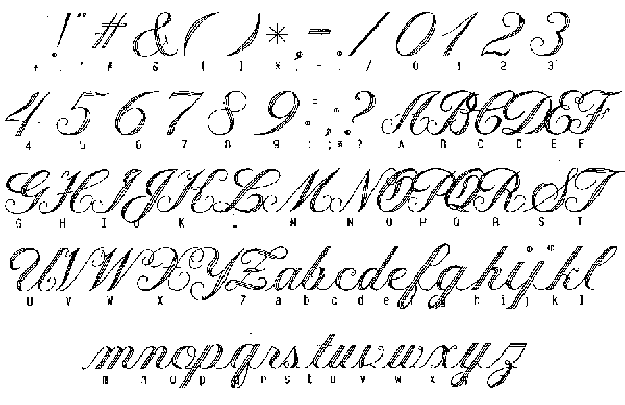 !"#&()*,-./0123
! " # & ( ) * , - . / 0 1 2 3
456789:;,.?ABCDEF
4 5 6 7 8 9 : ; * ? A B C D E F
GHIJKLMNOPQRST
G H I J K L M N O P Q R S T
UVWXYZabcdefghijkl
U V W X Z a b c d e f g h i j k l
mnopqrstuvwxyz
m n o p r s t u v w x y